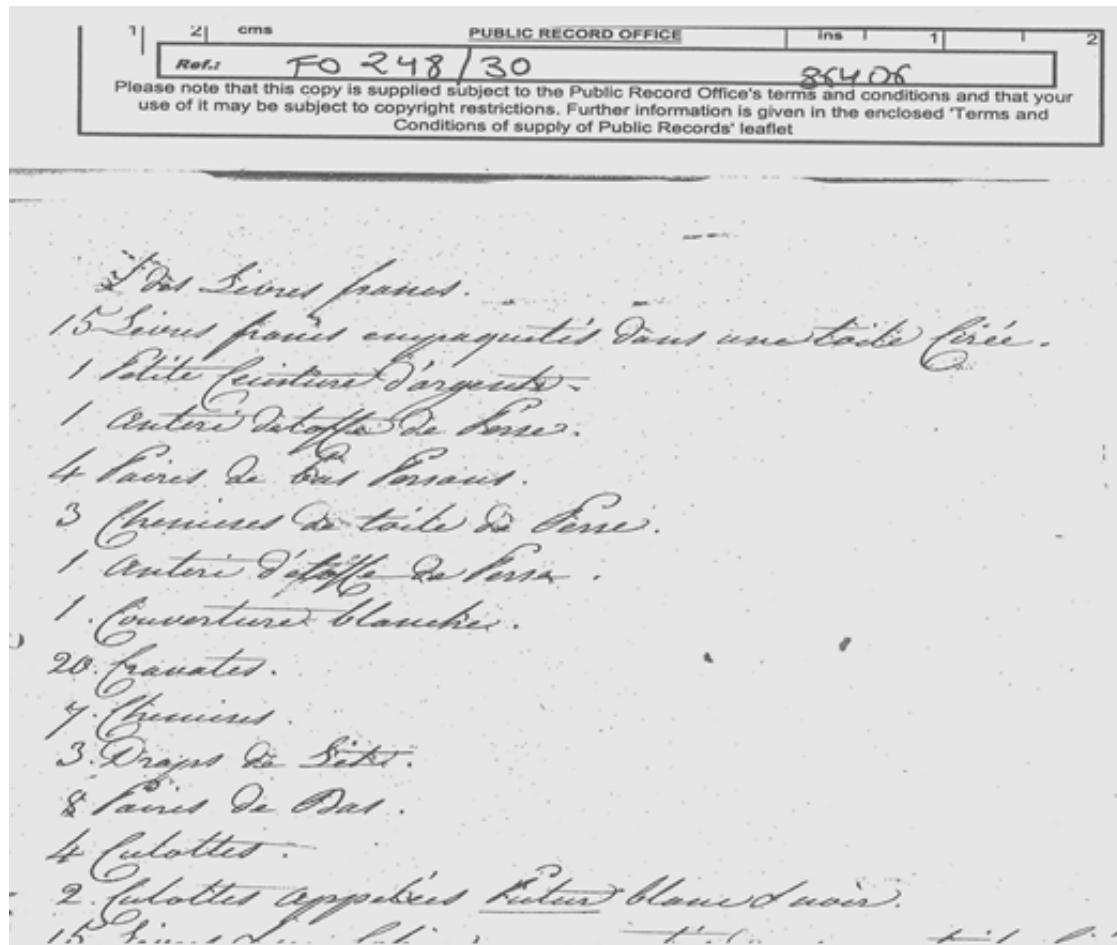 1 2 cms PUBLIC RECORD OFFICE ins 1 2
Ref.: FO 248/30 86406
Please note that this copy is supplied subject to the Public Record Office's terms and conditions and that your
use of it may be subject to copyright restrictions. Further information is given in the enclosed 'Terms and
Conditions of supply of Public Records' leaflet
des Livres francs.
15 Livres francs empaquetés dans une toile Cirée.
1 Petite Ceinture d'argent.
1 anteri d'étoffe de Perse.
4 Paires de bas Persans.
3 Chemises de toile de Perse.
1 anteri d'étoffe de Perse.
1. Couverture blanche.
20. Cravates.
7. Chemises.
3. Draps de Lits.
8 Paires de Bas.
4 Culottes.
2. Culottes appelées blanc & noir.
15